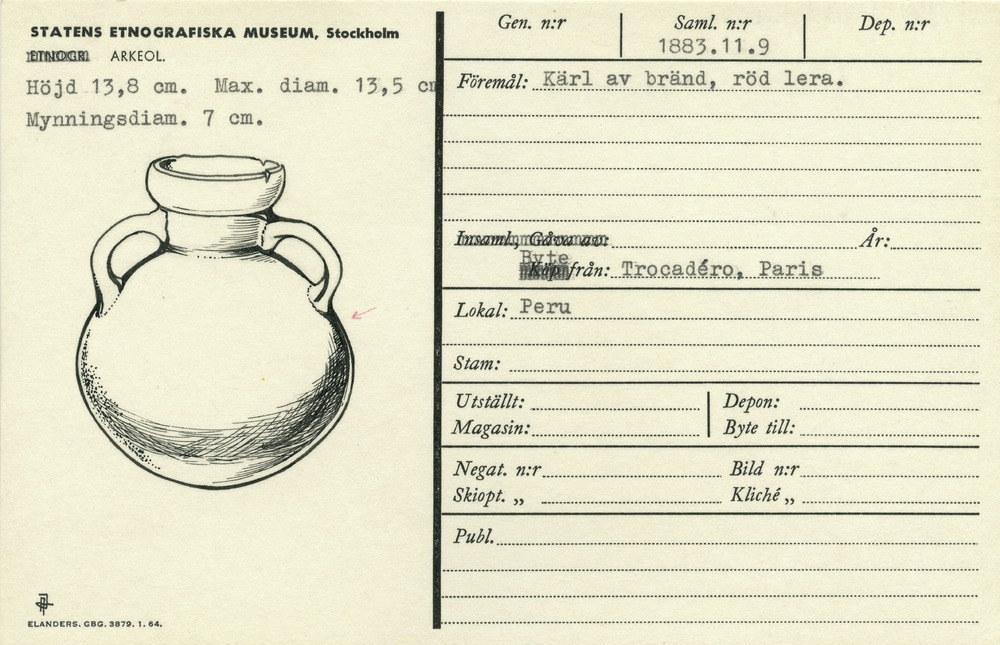 STATENS ETNOGRAFISKA MUSEUM, Stockholm
ETNOGR. ARKEOL.
Höjd 13,8 cm. Max. diam. 13,5 cm
Mynningsdiam. 7 cm.
ELANDERS. GBG. 3879. 1. 64.
Gen. n:r Saml. n:r Dep. n:r
1883.11.9
Föremål: Kärl av bränd, röd lera.
Insaml., Gåva av: År:
Byte
Köp från: Trocadéro, Paris
Lokal: Peru
Stam:
Utställt: Depon:
Magasin: Byte till:
Negat. n:r Bild n:r
Skiopt. „ Kliché „
Publ.